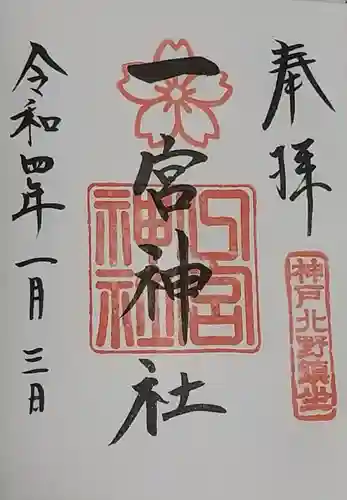 奉拝
神戸北野鎮坐
一宮神社
一宮神社
令和四年一月三日